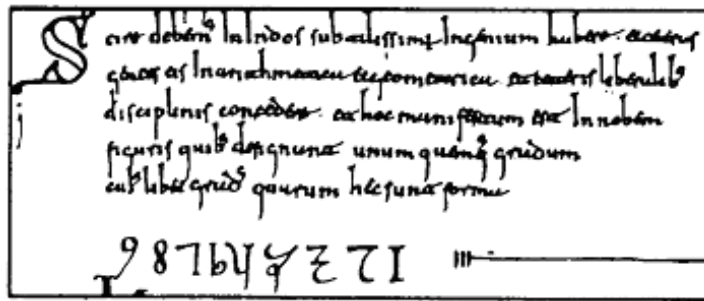 Scire debemꝰ In Indos subtilissimum Ingenium habere. et ceteras
gentes eis In arithmetica et geometrica et ceteris liberalibꝰ
disciplinis concedere. et hoc manifestum est In nobem
figuris quibꝰ designant unum quemqꝰ gradum
cuiꝰlibet gradꝰ quarum hec sunt forma
9 8 7 6 5 4 3 2 1